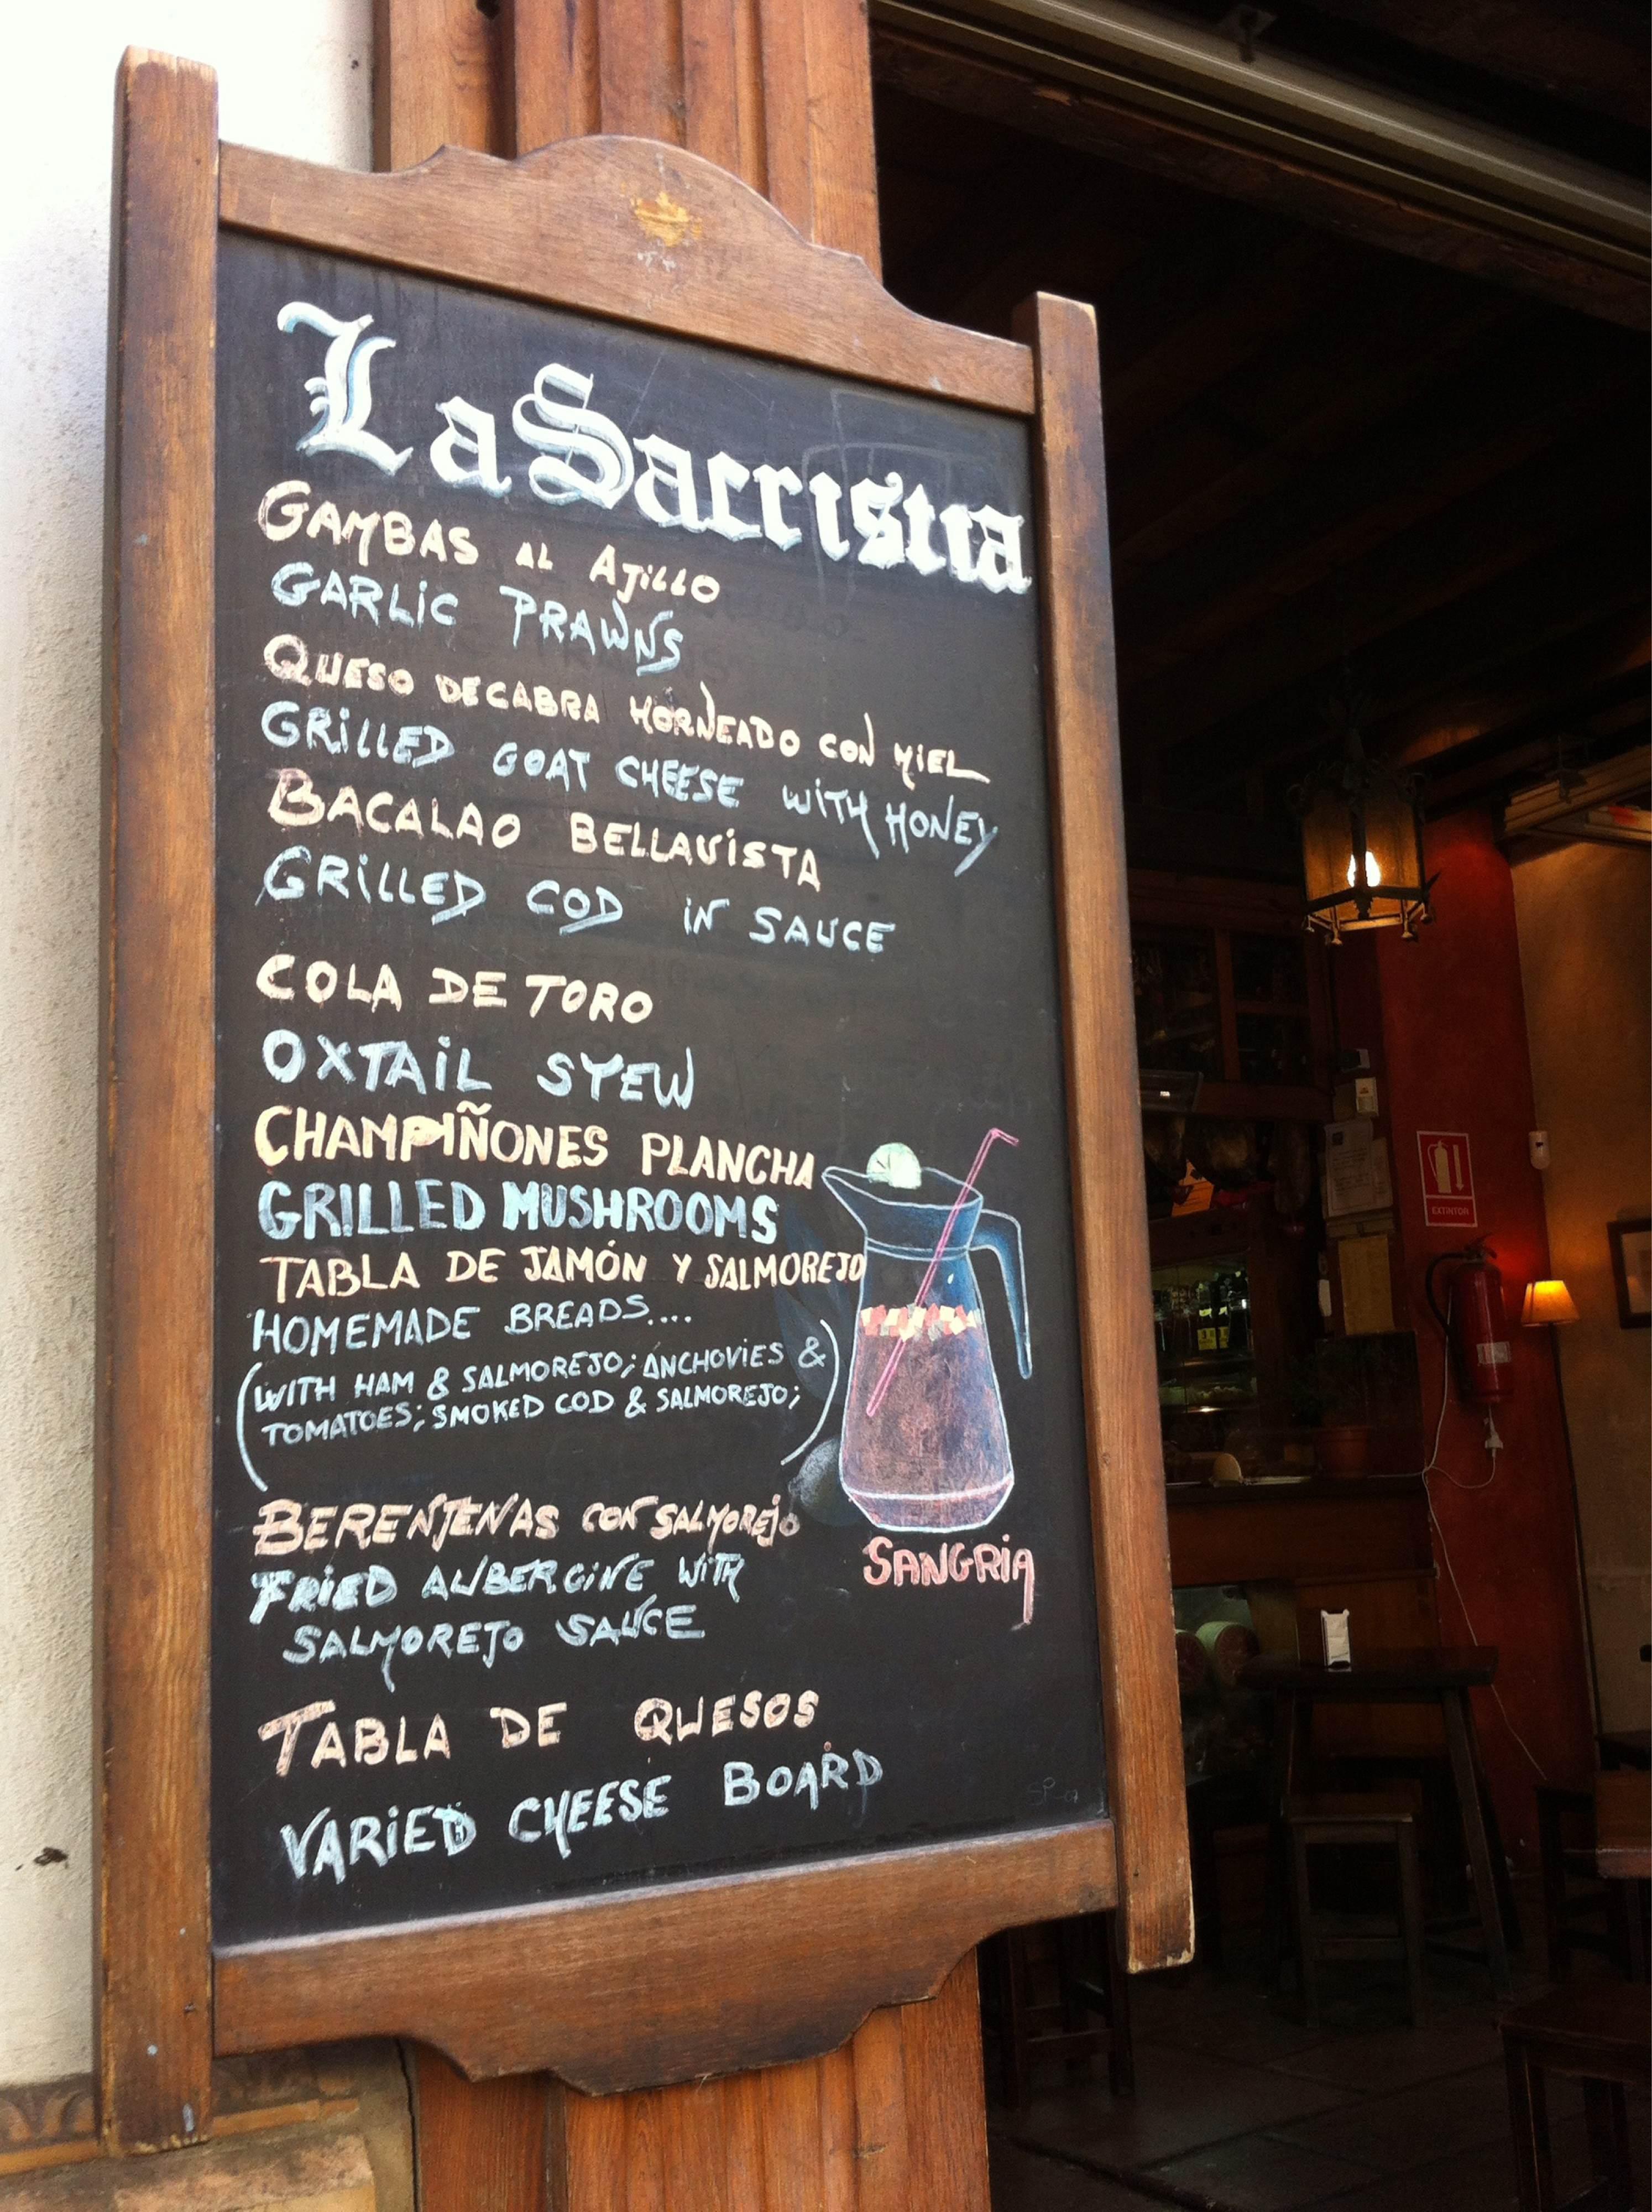 La Sacristia
GAMBAS AL AJiLLO
GARLiC PRAWNS
QUESO DE CABRA HORNEADO CON MIEL
GRiLLED GOAT CHEESE WiTH HONEY
BACALAO BELLAViSTA
GRiLLED COD iN SAUCE
COLA DE TORO
OXTAiL STEW
CHAMPIÑONES PLANCHA
GRILLED MUSHROOMS
TABLA DE JAMÓN Y SALMOREJO
HOMEMADE BREADS....
(WITH HAM & SALMOREJO; ANCHOVIES &
TOMATOES; SMOKED COD & SALMOREJO;)
BERENJENAS CON SALMOREJO
FRiED AUBERGiNE WiTH
SALMOREJO SAUCE
SANGRiA
TABLA DE QUESOS
VARiED CHEESE BOARD
EXTINTOR